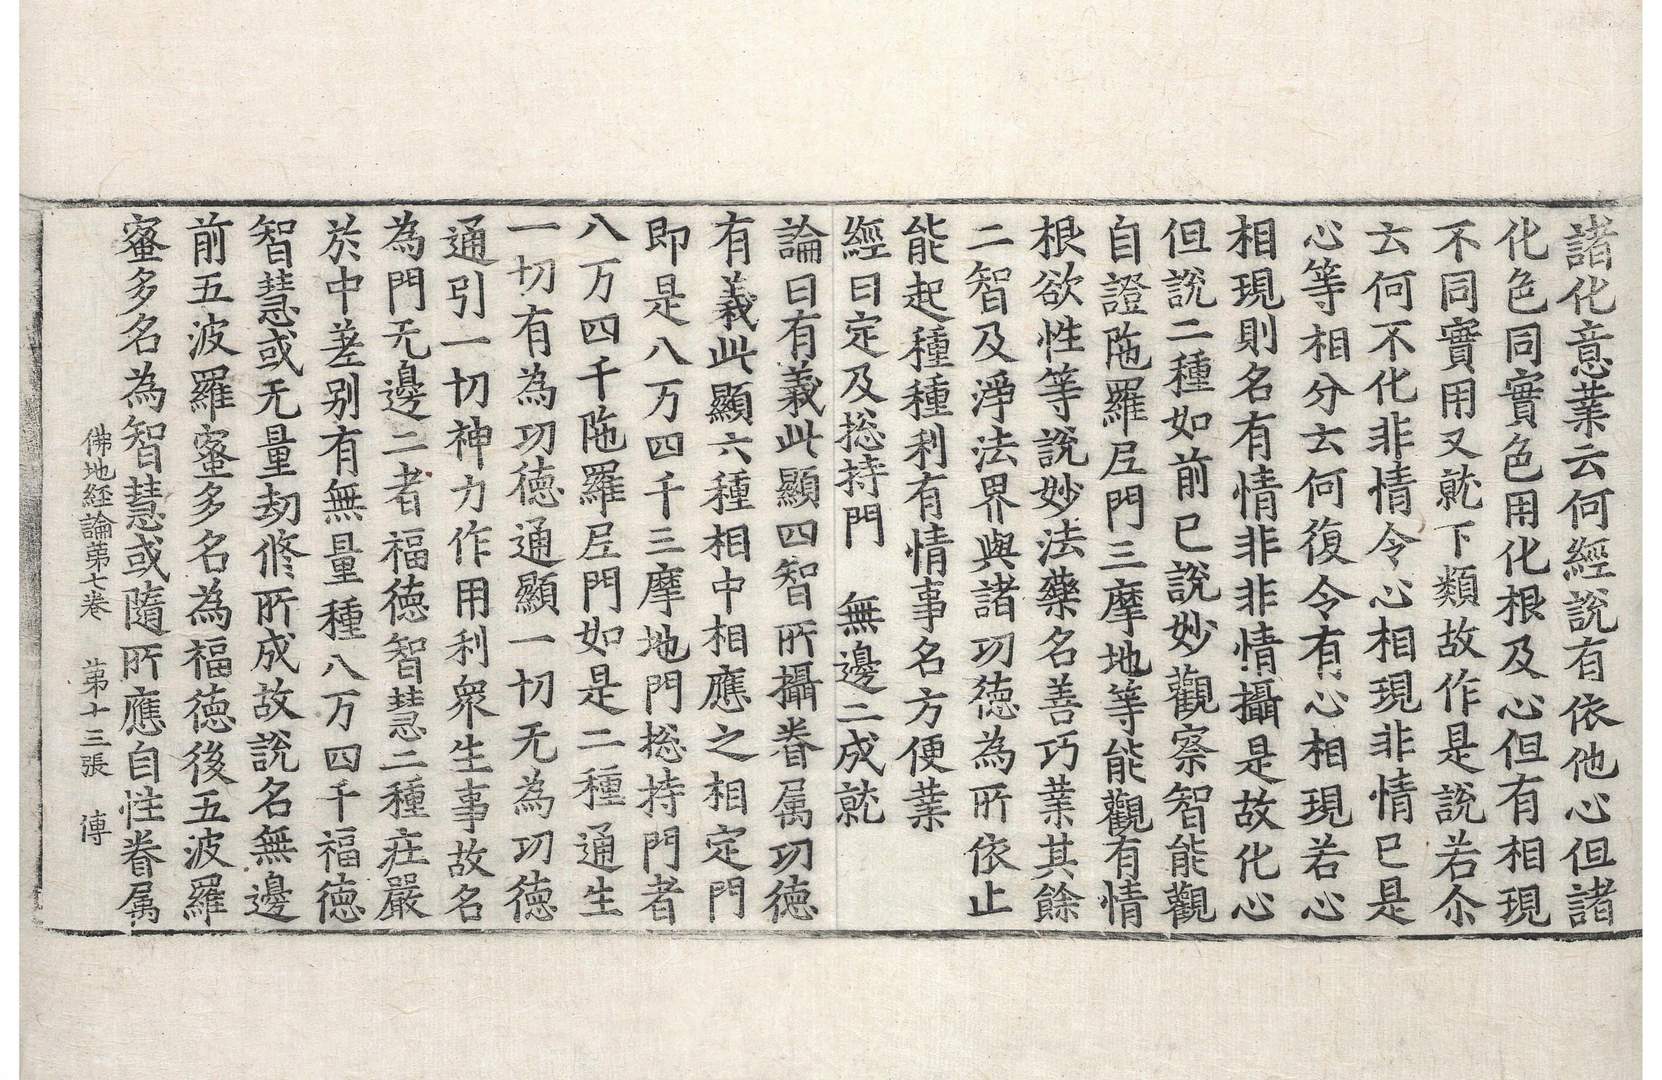 諸化意業云何經說有依他心但諸
化色同實色用化根及心但有相現
不同實用又就下類故作是說若尒
云何不化非情令心相現非情已是
心等相分云何復令有心相現若心
相現則名有情非非情攝是故化心
但說二種如前已說妙觀察智能觀
自證陁羅尼門三摩地等能觀有情
根欲性等說妙法藥名善巧業其餘
二智及淨法界與諸功德為所依止
能起種種利有情事名方便業
經曰定及捴持門　無邊二成就
論曰有義此顯四智所攝眷属功德
有義此顯六種相中相應之相定門
即是八万四千三摩地門捴持門者
八万四千陁羅尼門如是二種通生
一切有為功德通顯一切无為功德
通引一切神力作用利衆生事故名
為門无邊二者福德智慧二種庄嚴
於中差别有無量種八万四千福德
智慧或无量劫修所成故說名無邊
前五波羅蜜多名為福德後五波羅
蜜多名為智慧或隨所應自性眷属
佛地経論苐七卷　苐十三張　傳